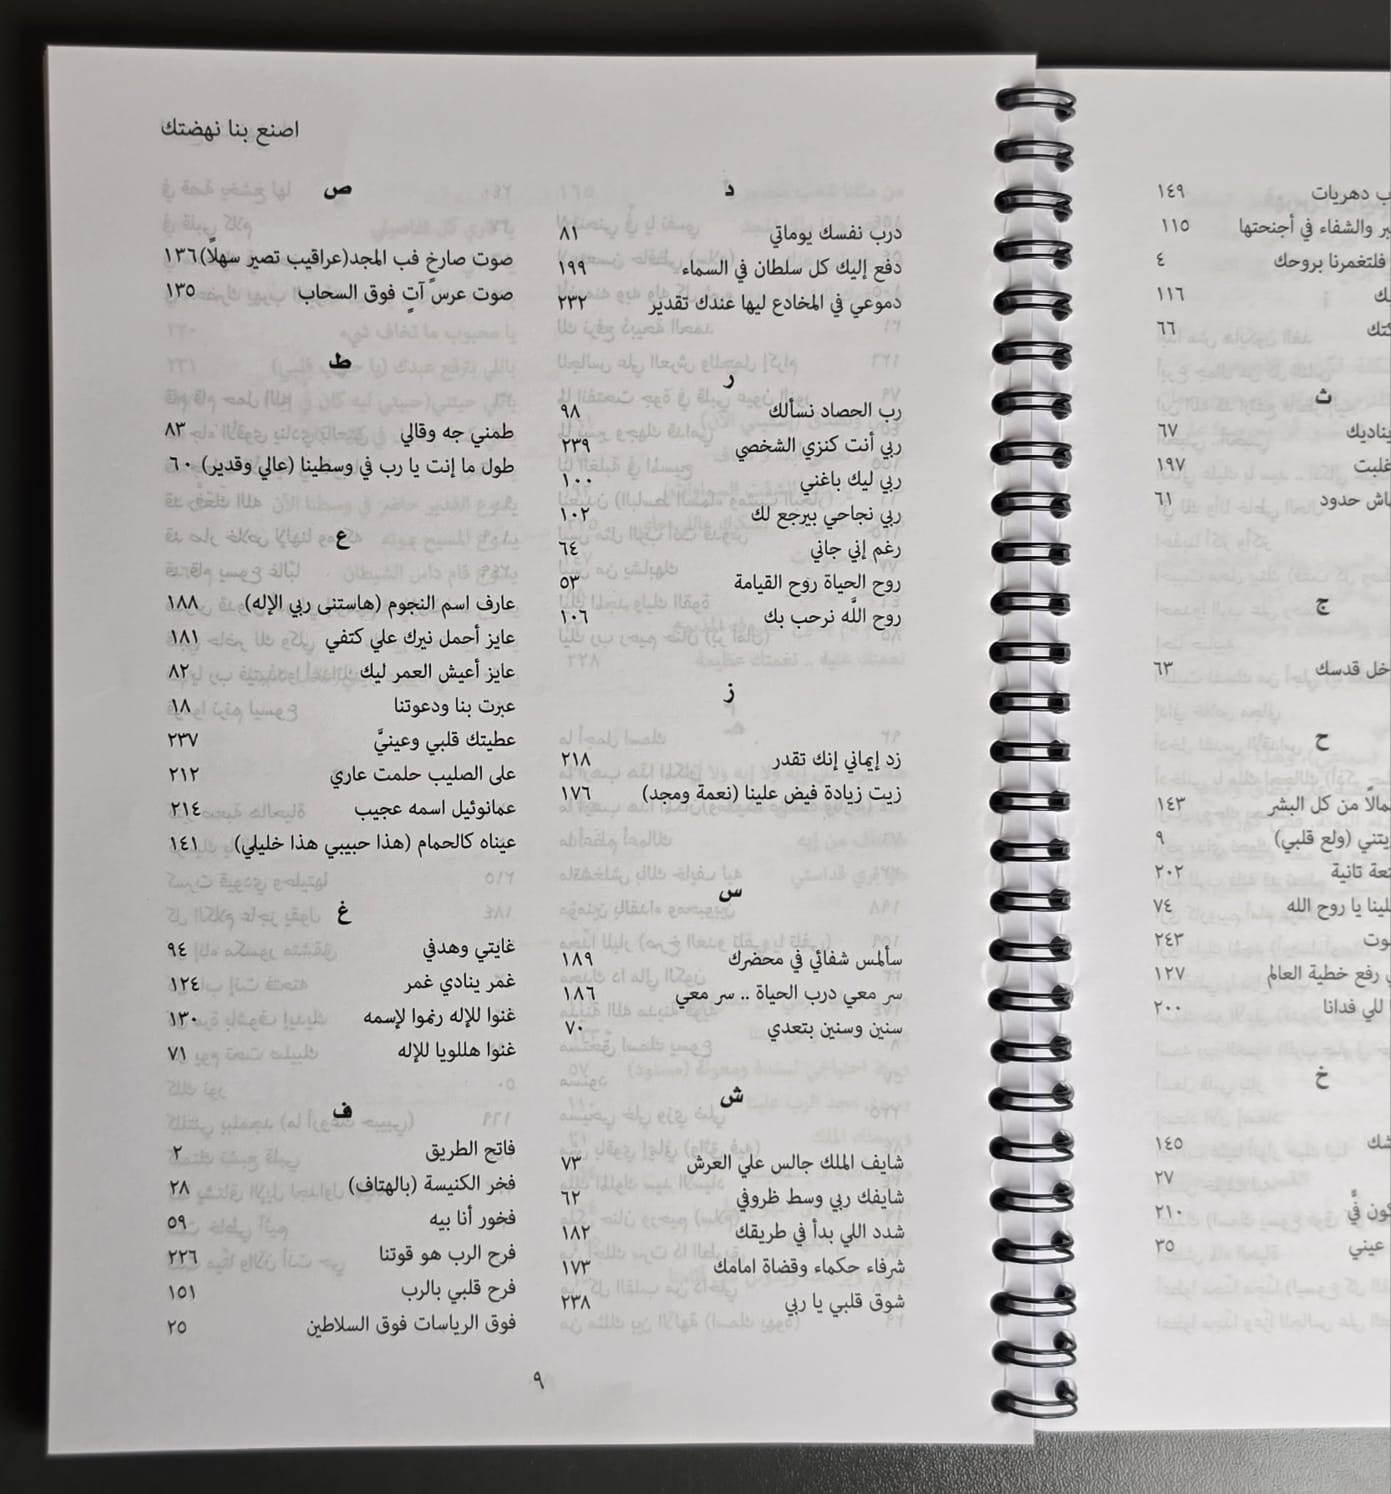 ب دهريات ١٤٩
ير والشفاء في أجنحتها ١١٥
فلتغمرنا بروحك ٤
ك ١١٦
كتك ٦٦
ث
يناديك ٦٧
غلبت ١٩٧
باش حدود ٦١
ج
خل قدسك ٦٣
ح
مالًا من كل البشر ١٤٣
يتني (ولع قلبي) ٩
تعة تانية ٢٠٢
لينا يا روح الله ٧٤
وت ٢٤٣
ي رفع خطية العالم ١٢٧
للي فدانا ٢٠٠
خ
شك ١٤٥
٢٧
كون فيَّ ٢١٠
عيني ٣٥
اصنع بنا نهضتك
د
درب نفسك يوماتي ٨١
دفع إليك كل سلطان في السماء ١٩٩
دموعي في المخادع ليها عندك تقدير ٢٣٢
ر
رب الحصاد نسألك ٩٨
ربي أنت كنزي الشخصي ٢٣٩
ربي ليك باغني ١٠٠
ربي نجاحي بيرجع لك ١٠٢
رغم إني جاني ٦٤
روح الحياة روح القيامة ٥٣
روح اللَّه نرحب بك ١٠٦
ز
زد إيماني إنك تقدر ٢١٨
زيت زيادة فيض علينا (نعمة ومجد) ١٧٦
س
سألمس شفائي في محضرك ١٨٩
سر معي درب الحياة .. سر معي ١٨٦
سنين وسنين بتعدي ٧٠
ش
شايف الملك جالس علي العرش ٧٣
شايفك ربي وسط ظروفي ٦٢
شدد اللي بدأ في طريقك ١٨٢
شرفاء حكماء وقضاة امامك ١٧٣
شوق قلبي يا ربي ٢٣٨
ص
صوت صارخٍ فب المجد(عراقيب تصير سهلًا)١٣٦
صوت عرسٍ آتٍ فوق السحاب ١٣٥
ط
طمني جه وقالي ٨٣
طول ما إنت يا رب في وسطينا (عالي وقدير) ٦٠
ع
عارف اسم النجوم (هاستنى ربي الإله) ١٨٨
عايز أحمل نيرك علي كتفي ١٨١
عايز أعيش العمر ليك ٨٢
عبرت بنا ودعوتنا ١٨
عطيتك قلبي وعينيَّ ٢٣٧
على الصليب حلمت عاري ٢١٢
عمانوئيل اسمه عجيب ٢١٤
عيناه كالحمام (هذا حبيبي هذا خليلي) ١٤١
غ
غايتي وهدفي ٩٤
غمَر ينادي غمر ١٢٤
غنوا للإله رنموا لإسمه ١٣٠
غنوا هللويا للإله ٧١
ف
فاتح الطريق ٢
فخر الكنيسة (بالهتاف) ٢٨
فخور أنا بيه ٥٩
فرح الرب هو قوتنا ٢٢٦
فرح قلبي بالرب ١٥١
فوق الرياسات فوق السلاطين ٢٥
٩